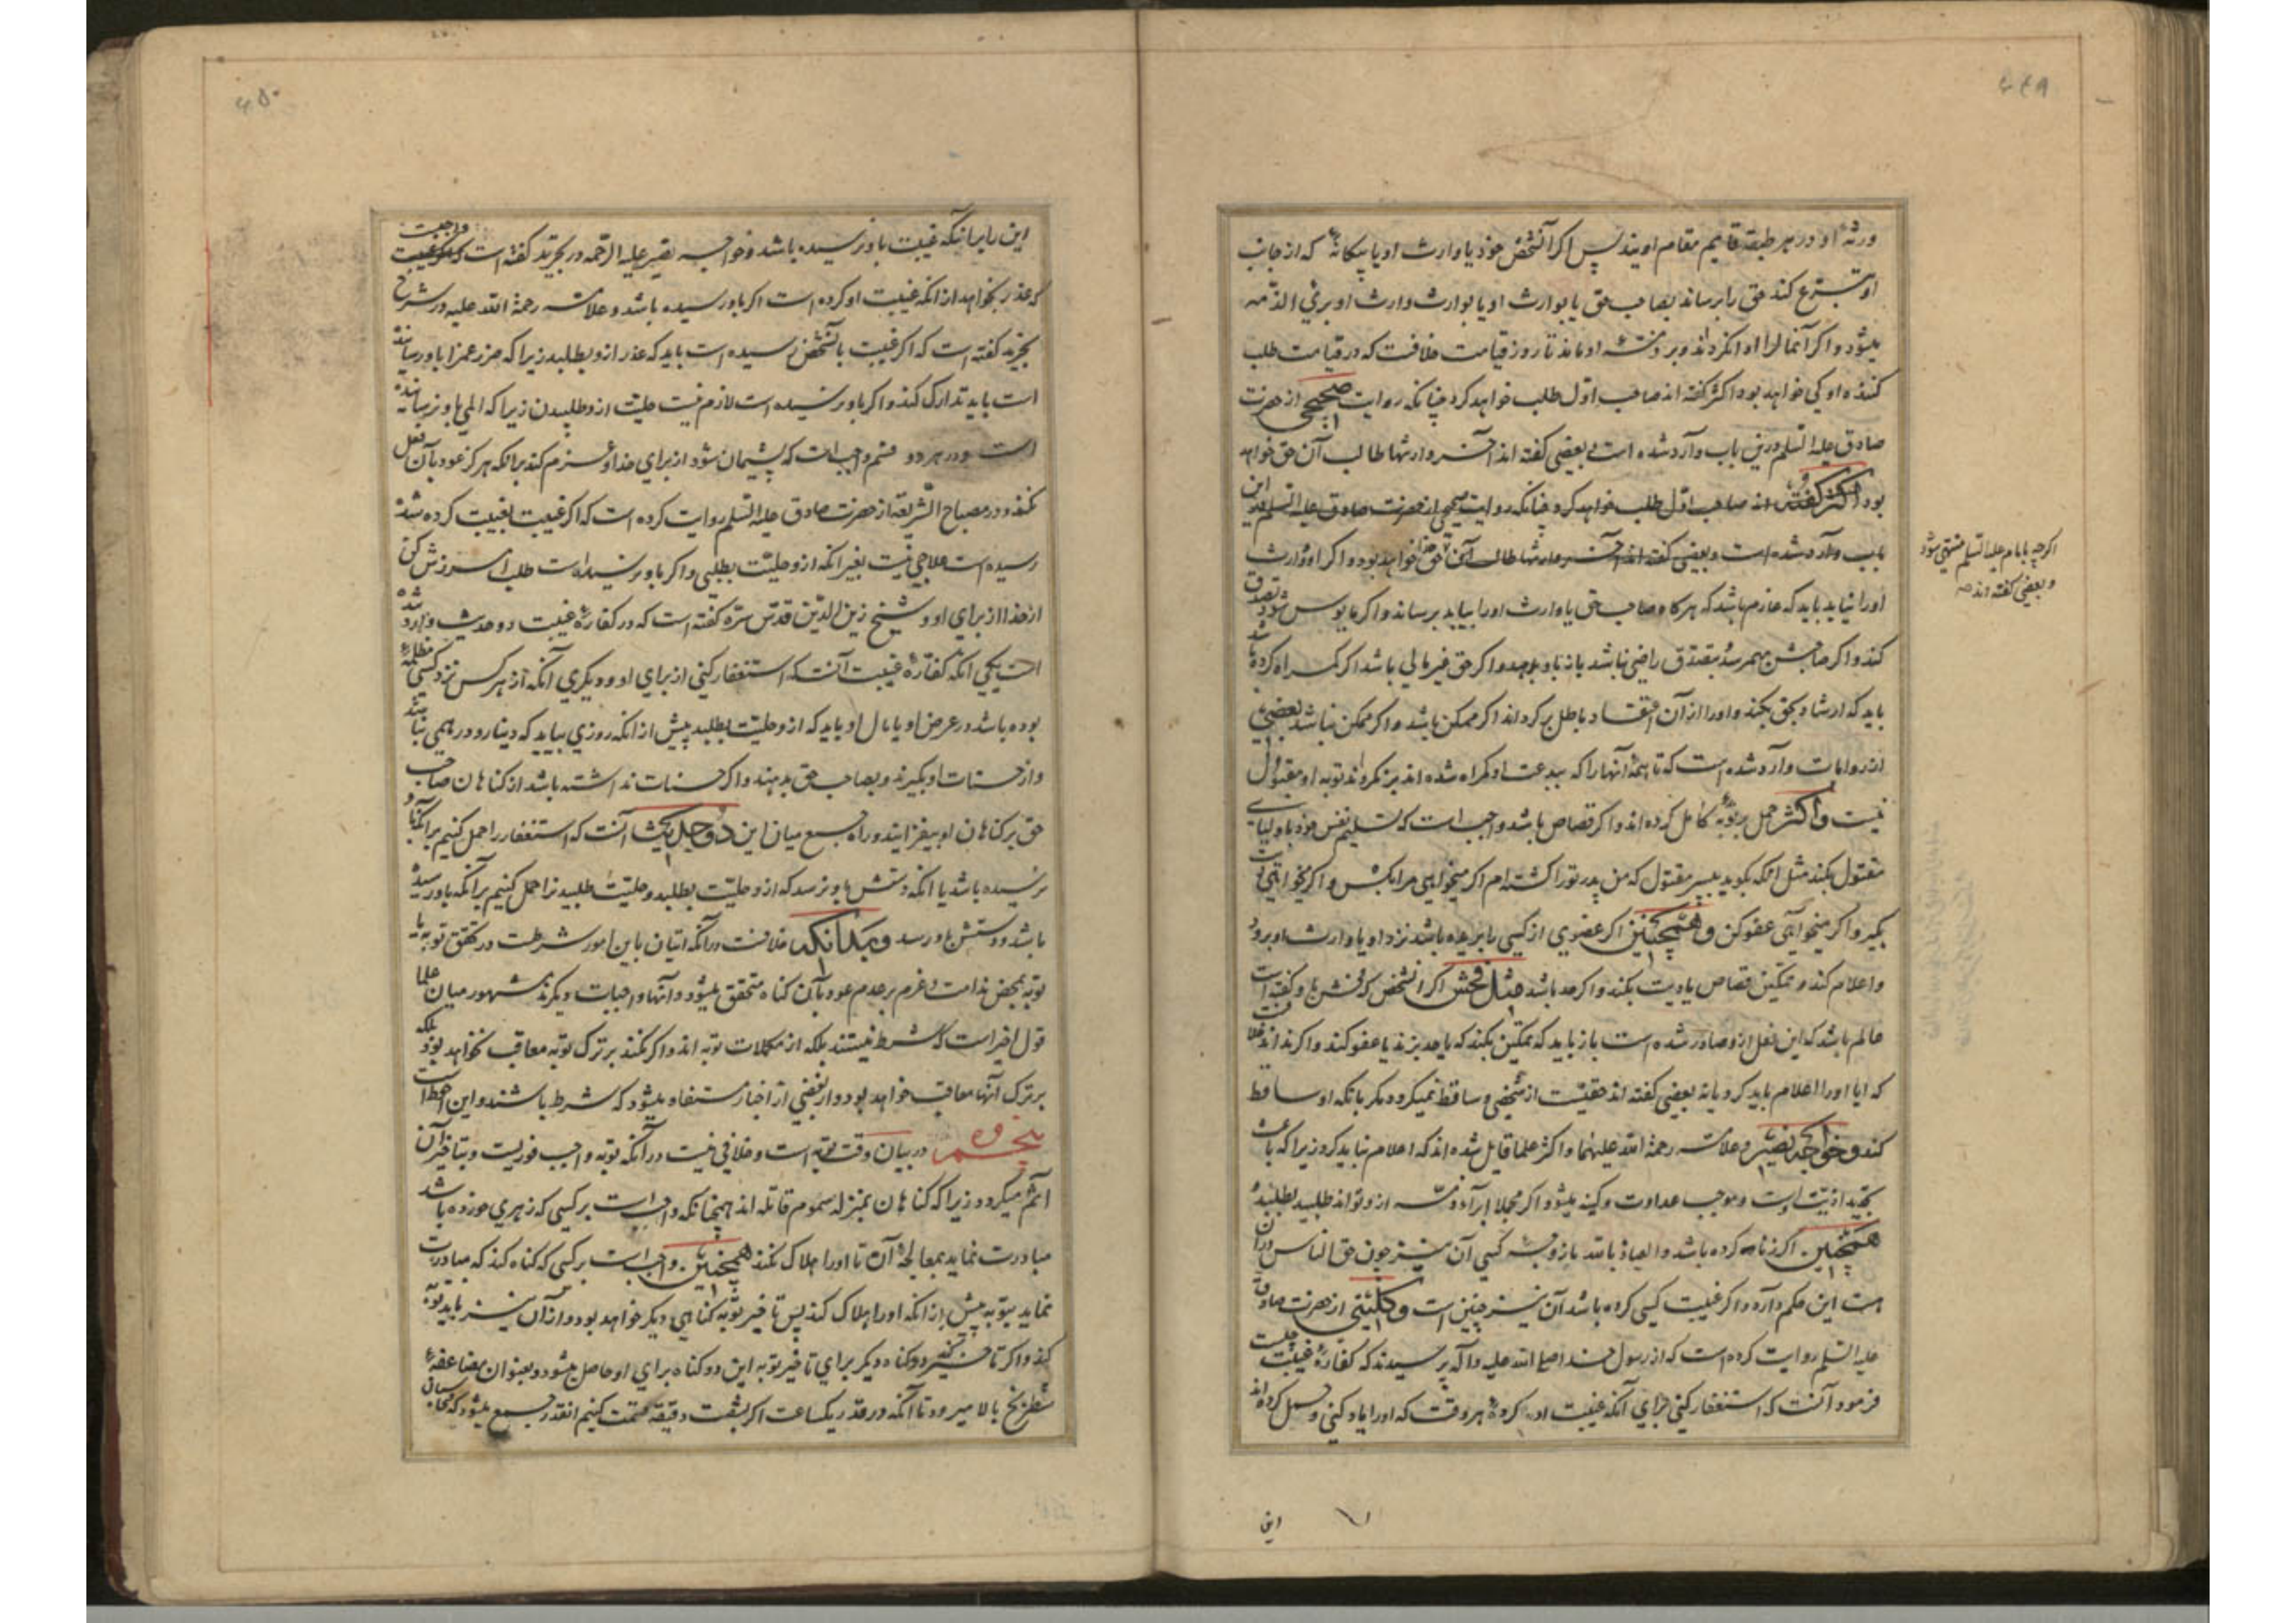 ۶۴۹
ورثهٔ او در هر طبقه قایم مقام اویند پس اگر آنشخص خود یا وارث او یا بیکانهٔ که از جانب
او تبرع کند حق را برساند بصاحب حق یا بوارث او یا بوارث وارث او بریٔ الذمه
میشود و اکر آنمال را ادا نکرداند و بر ذمتهٔ او ماند تا روز قیامت خلافست که در قیامت طلب
کننده او کی خواهد بود اکثر کفته اند صاحب اوّل طلب خواهد کرد چنانکه روایت صحیحی از حضرت
صادق علیه السلم درین باب وارد شده است و بعضی کفته اند آخر وارثها طالب آن حق خواهد
بود اکثر کفته اند صاحب اوّل طلب خواهد کرد چنانکه روایت صحیحی از حضرت صادق علیه السلم درین
باب وارد شده است و بعضی کفته اند آخر وارثها طالب آن حق خواهد بود و اکر او و وارث
اکرچه بامام علیه السلم منتهی شود
و بعضی کفته اند صح
او را نیابد باید که عازم باشد که هرکاه صاحب حق یا وارث او را بیابد برساند و اکر مایوس شود تصدق
کند و اکر صاحبش بهم رسد و بتصدّق راضی نباشد باز باو بدهد و اکر حق غیر مالی باشد اکر کمراه کرده باشد
باید که ارشاد بحق بکند و او را از آن اعتقاد باطل بر کرداند اکر ممکن باشد و اکر ممکن نباشد بعضی
از روایات وارد شده است که تا همهٔ آنها را که ببدعت او کمراه شده اند بر نکرداند توبه او مقبول
نیست و اکثر حمل بر توبهٔ کامل کرده اند و اکر قصاص باشد واجب است که تسلیم نفس خود باولیای
مقتول بکند مثل آنکه بکوید بپسر مقتول که من پدر تو را کشته ام اکر میخواهی مرا بکش و اکر میخواهی دیت
بکیر و اکر میخواهی عفو کن و همچنین اکر عضوی از کسی را بریده باشد نزد او یا وارث او برود
و اعلام کند و تمکین قصاص یا دیت بکند و اکر حد باشد مثل فحش اکر آنشخص که فحش باو کفته است
عالم باشد که این فعل ازو صادر شده است باز باید که تمکین بکند که یا حد بزند یا عفو کند و اکر نداند خلافست
که ایا او را اعلام باید کرد یا نه بعضی کفته اند حقیّت از شخص ساقط نمیکردد مکر بانکه او ساقط
کند و خواجه نصیر و علامه رحمة الله علیهما و اکثر علما قایل شده اند که اعلام نباید کرد زیرا که باعث
تجدید اذیّت اوست و موجب عداوت و کینه میشود اکر مجملا ابرآء ذمه ازو تواند طلبید بطلبد و
همچنین اکر زنا کرده باشد و العیاذ بالله بازوجه کسی آن نیز چون حق الناس دران
است این حکم دارد و اکر غیبت کسی کرده باشد آن نیز چنین است و کلینی از حضرت صادق
علیه السلم روایت کرده است که از رسول خدا صلی الله علیه و آله پرسیدند که کفارهٔ غیبت چیست
فرمود آنست که استغفار کنی برای آنکه غیبت او کردهٔ هر وقت که او را یاد کنی و حمل کرده اند
این
۶۵۰
این را برانکه غیبت باو نرسیده باشد و خواجه نصیر علیه الرّحمه در تجرید کفته است که واجبست
که عذر بخواهد از انکه غیبت او کرده است اکر باو رسیده باشد و علامه رحمة الله علیه در شرح
تجرید کفته است که اکر غیبت بآنشخص رسیده است باید که عذر ازو بطلبد زیرا که ضرر غم را باو رسانیده
است باید تدارک کند و اکر باو نرسیده است لازم نیست حلیّت ازو طلبیدن زیرا که المی باو نرسانیده
است و در هر دو قسم واجب است که پشیمان شود از برای خدا و عزم کند برانکه هرکز عود بآن فعل
نکند و در مصباح الشریعة از حضرت صادق علیه السلم روایت کرده است که اکر غیبت بغیبت کرده شده
رسیده است علاجی نیست بغیر انکه ازو حلیّت بطلبی و اکر باو نرسیده است طلب آمرزش کن
از خدا از برای او و شیخ زین الدّین قدّس سرّه کفته است که در کفارهٔ غیبت دو حدیث وارد شده
است یکی آنکه کفّارهٔ غیبت آنست که استغفار کنی از برای او و دیکری آنکه از هر کس نزد کسی مظلمهٔ
بوده باشد در عرض او یا مال او باید که ازو حلیّت بطلبد پیش از انکه روزی بیاید که دینار و درهمی نباشد
و از حسنات او بکیرند و بصاحب حق بدهند و اکر حسنات نداشته باشد از کناهان صاحب
حق بر کناهان او بیفزایند و راه جمع میان این دو حدیث آنست که استغفار را حمل کنیم برانکه باو
نرسیده باشد یا انکه دستش باو نرسد که ازو حلیّت بطلبد و حلیّت طلبید نرا حمل کنیم برآنکه باو رسیده
باشد و دستش باو رسد و بدانکه خلافست درآنکه اتیان باین امور شرطست در تحقق توبه یا
توبه بمحض ندامت و عزم بر عدم عود بآن کناه متحقق میشود و آنها واجبات دیکرند مشهور میان علما
قول اخیر است که شرط نیستند بلکه از مکملات توبه اند و اکر نکند بر ترک توبه معاقب نخواهد بود بلکه
بر ترک آنها معاقب خواهد بود و از بعضی از اخبار مستفاد میشود که شرط باشند و این احوط است
پنجم در بیان وقت توبه است و خلافی نیست درآنکه توبه واجب فوریست و بتاخیر آن
آثم میکردد زیرا که کناهان بمنزله سموم قاتله اند همچنانکه واجب است بر کسی که زهری خورده باشد
مبادرت نماید بمعالجهٔ آن تا او را هلاک نکند همچنین واجب است بر کسی که کناه کند که مبادرت
نماید بتوبه پیش از انکه او را هلاک کند پس تاخیر توبه کناهی دیکر خواهد بود و از آن نیز باید توبه
کند و اکر تاخیر کند دو کناه دیکر برای تاخیر توبه این دو کناه برای او حاصل میشود و بعنوان مضاعفهٔ
شطرنج بالا میرود تا آنکه در قدر یکساعت اکر بشصت دقیقه قسمت کنیم انقدر جمع میشود که